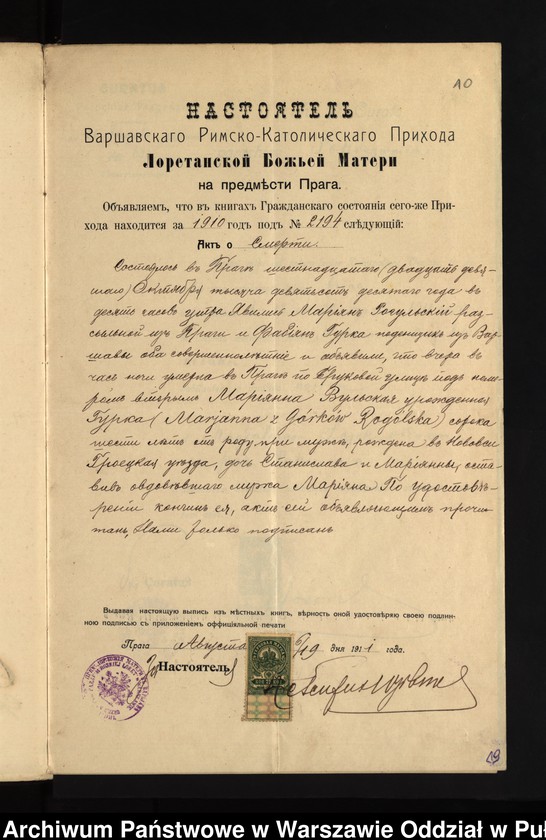 10
НАСТОЯТЕЛЬ
Варшавскаго Римско-Католическаго Прихода
Лоретанской Божьей Матери
на предмѣсти Прага.
Объявляемъ, что въ книгахъ Гражданскаго состоянія сего-же При-
хода находится за 1910 годъ подъ № 2194 слѣдующій:
Актъ о Смерти.
Состоялось въ Прагѣ шестнадцатаго (двадцать девя-
таго) Октября тысяча девятьсотъ десятаго года въ
десять часовъ утра Явились Маріянъ раз-
сыльной изъ Праги и Фабіянъ Гурка поденщикъ изъ Вар-
шавы оба совершеннолѣтніе и объявили, что вчера въ
часъ ночи умерла въ Прагѣ по Бруковой улицѣ подъ номе-
ромъ вторымъ Маріянна урожденная
Гурка (Marjanna z Górków Rogólska) сорока
шести лѣтъ отъ роду, при мужѣ, рождена въ Нововси
Гроецкая уѣзда, дочь Станислава и Маріянны, оста-
вивъ овдовѣвшаго мужа Маріяна По удостовѣ-
реніи кончины ея, актъ сей объявляющимъ прочи-
танъ, Нами только подписанъ
Выдавая настоящую выпись изъ мѣстныхъ книг, вѣрность оной удостовѣряю своею подлин-
ною подписью съ приложеніемъ оффиціяльной печати
Прага Августа 19 дня 1911 года.
Настоятель
19
Archiwum Państwowe w Warszawie Oddział w Pu